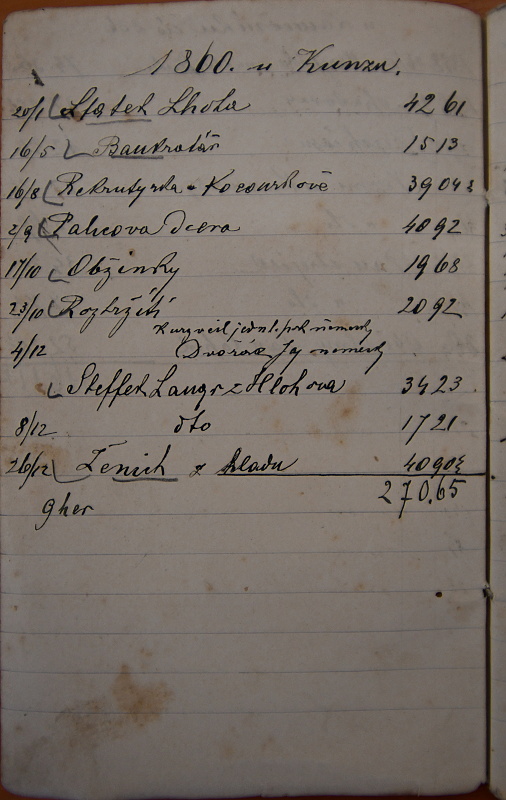 1860. u Kunzu.
20/1 Statek Lhota 42 61
16/5 Bankrotář 15 13
16/8 Rekrutyrka v Kocourkově 39 04½
2/9 Palicova Dcera 40 92
17/10 Obžinky 19 68
23/10 Roztržití 20 92
Kurzveil jedn. prk německy
4/12 Dvořák Jg německy
Steffek Langr z Hlohova 34 23
8/12 dto 17 21
26/12 Ženich z hladu 40 90½
9 her 270.65